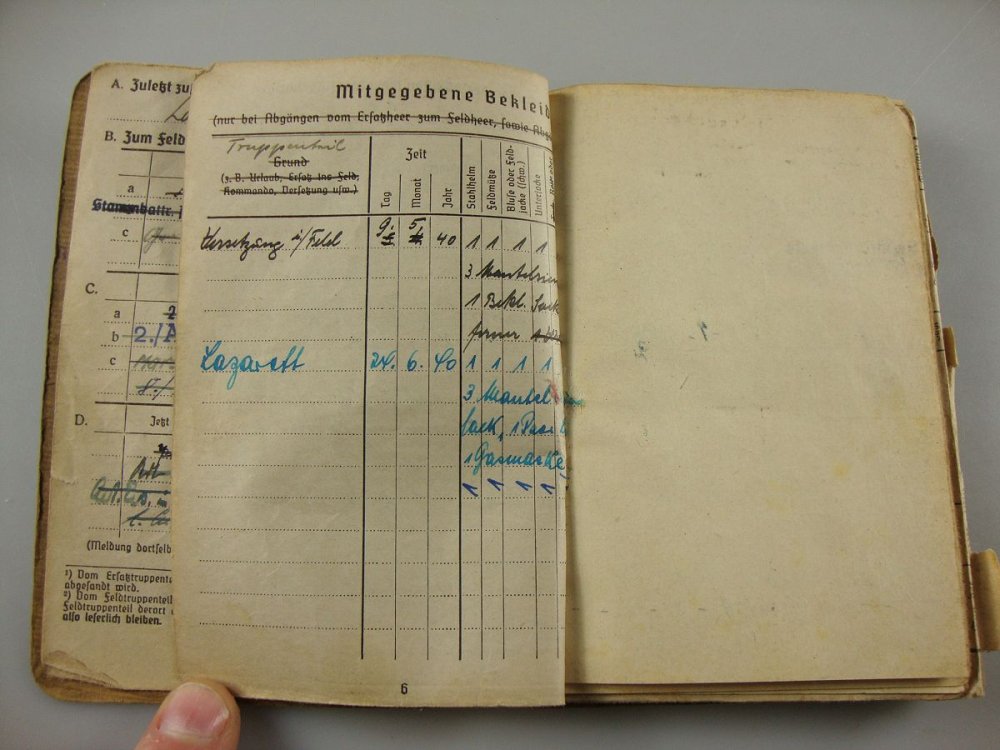 A. Zuletzt zu
B. Zum Feld
a
Stammbattr.
c
C.
a
b 2./A
c
D. Jetzt
(Meldung dortselb
¹) Vom Ersatztruppente
abgesandt wird.
²) Vom Feldtruppenteil
Feldtruppenteil derort
also leserlich bleiben.
Mitgegebene Bekleid
(nur bei Abgängen vom Ersatzheer zum Feldheer, sowie Abg
Truppenteil
Grund
(z. B. Urlaub, Ersatz ins Feld,
Kommando, Versetzung usw.)
Zeit
Tag
Monat
Jahr
Stahlhelm
Feldmütze
Bluse oder Feld-
jacke (schw.)
Unterjacke
Versetzung i/Feld 9. 5. 40 1 1 1 1
3 Mantelrie
1 Bekl. Sack
ferner
Lazarett 24. 6. 40 1 1 1 1
3 Mantel
sack, 1
1 Gasmaske,
1 1 1 1
6